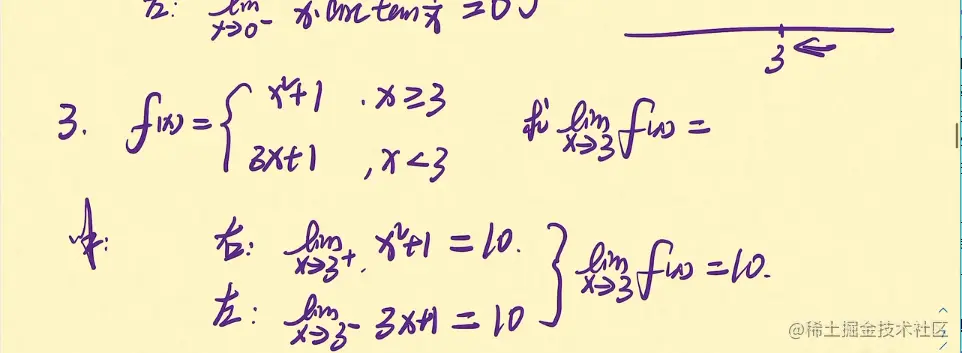 左: lim x→0⁻ x·arctan 1/x = 0
3
3. f(x) = { x²+1 , x≥3
3x+1 , x<3
求 lim x→3 f(x) =
右: lim x→3⁺ x²+1 = 10.
左: lim x→3⁻ 3x+1 = 10
} lim x→3 f(x) = 10.
@稀土掘金技术社区